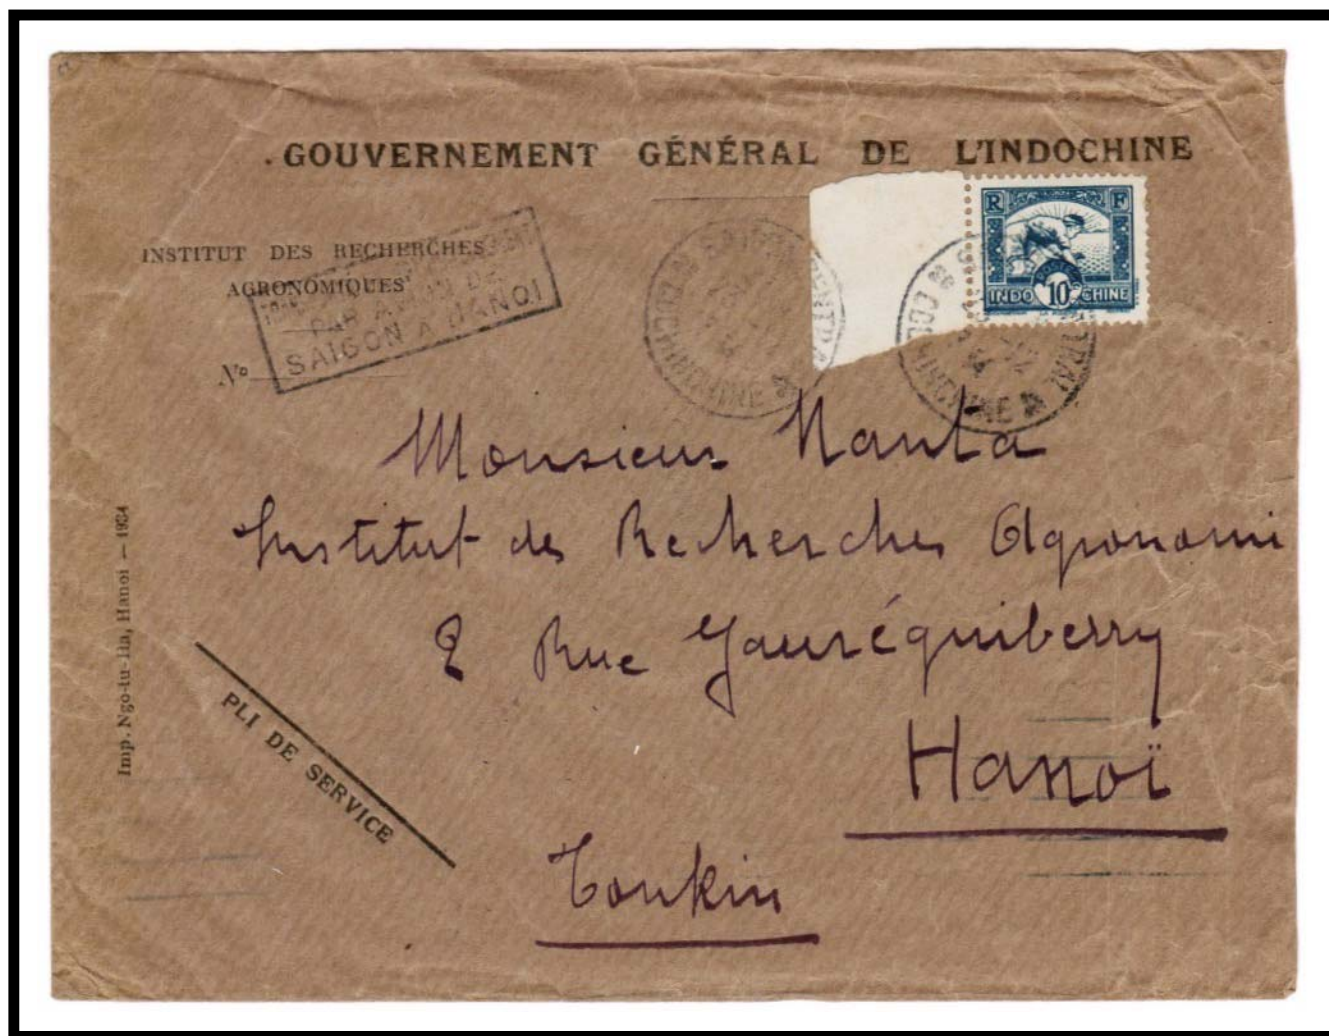 GOUVERNEMENT GÉNÉRAL DE L'INDOCHINE
R F
INSTITUT DES RECHERCHES
AGRONOMIQUES
PAR AVION DE
SAIGON A HANOI
No
SAIGON CENTRAL
COCHINCHINE
POSTES
10
INDO CHINE
COCHINCHINE
Monsieur Nanta
Institut des Recherches Agronomi
2 Rue Jauréguiberry
Hanoï
Tonkin
PLI DE SERVICE
Imp. Ngo-tu-Ha, Hanoi — 1934